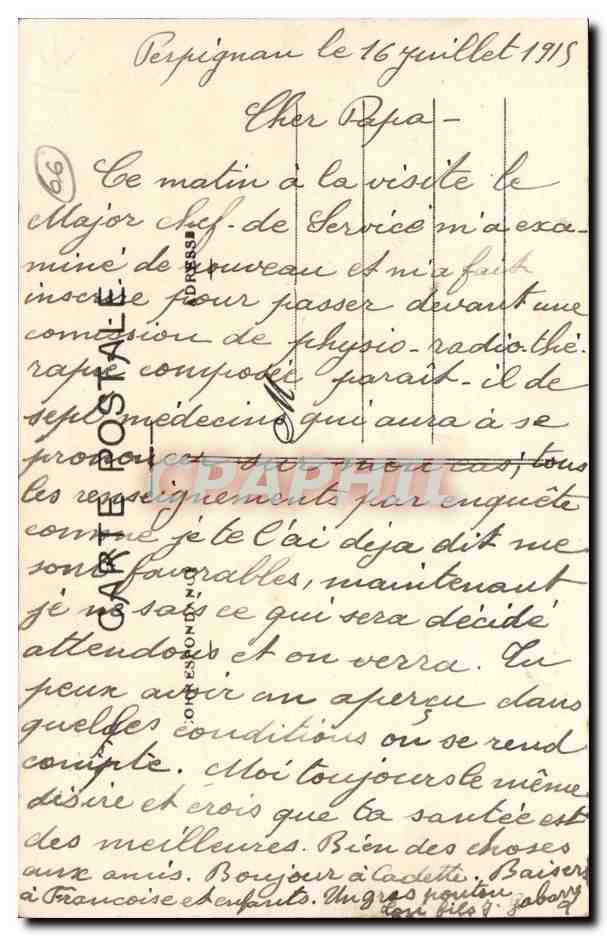 Perpignan le 16 Juillet 1915
Cher Papa -
66
Ce matin à la visite le
Major chef-de Service m'a exa-
miné de nouveau et m'a fait
inscrire pour passer devant une
comission de physio-radio-thé-
rapie composée paraît-il de
sept médecins qui aura à se
prononcer sur mon cas; tous
les renseignements par enquête
comme je te l'ai déja dit me
sont favorables, maintenant
je ne sais ce qui sera décidé
attendons et on verra. Tu
peux avoir un aperçu dans
quelles conditions on se rend
compte. Moi toujours le même
désire et crois que ta santée est
des meilleures. Bien des choses
aux amis. Boujour à Cadette. Baisers
à Francoise et enfants. Un gros poutou
ton fils J.
CARTE POSTALE
CORRESPONDANCE
ADRESSE
M
CPAPHIL